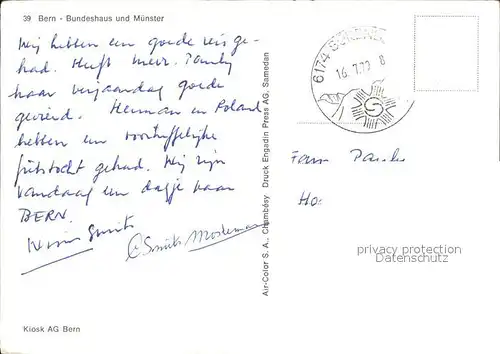 39 Bern - Bundeshaus und Münster
Wij hebben een goede reis ge-
had. Heeft mevr. Pauly
haar verjaardag goede
gevierd. Herman en Roland
hebben een voortreffelijke
fietstocht gehad. Wij zijn
vandaag een dagje naar
BERN.
Smits
C Smits
Kiosk AG Bern
Air-Color S. A., Chambésy Druck Engadin Press AG, Samedan
6174
16.7.79 8
Fam
privacy protection
Datenschutz